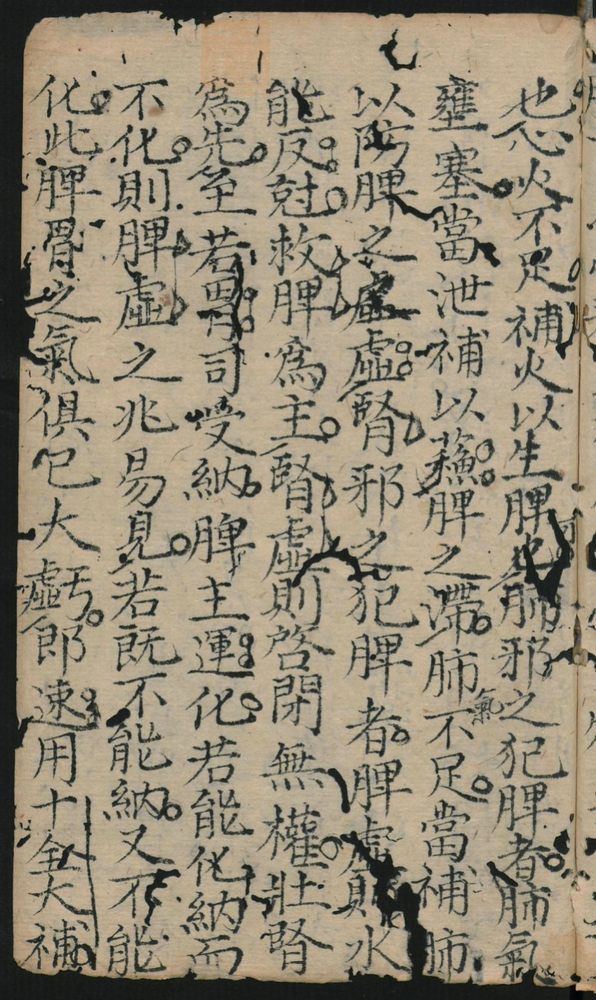 也心火不足補火以生脾也肺邪之犯脾者肺氣
壅塞當泄補以蘓脾之滯肺氣不足當補肺
以防脾之虛虛腎邪之犯脾者脾虛則水
能反尅救脾為主腎虛則啓閉無權壯腎
為先至若胃司受納脾主運化若能化納而
不化則脾虛之兆易見若既不能納又不能
化此脾胃之氣俱已大虧即速用十全大補